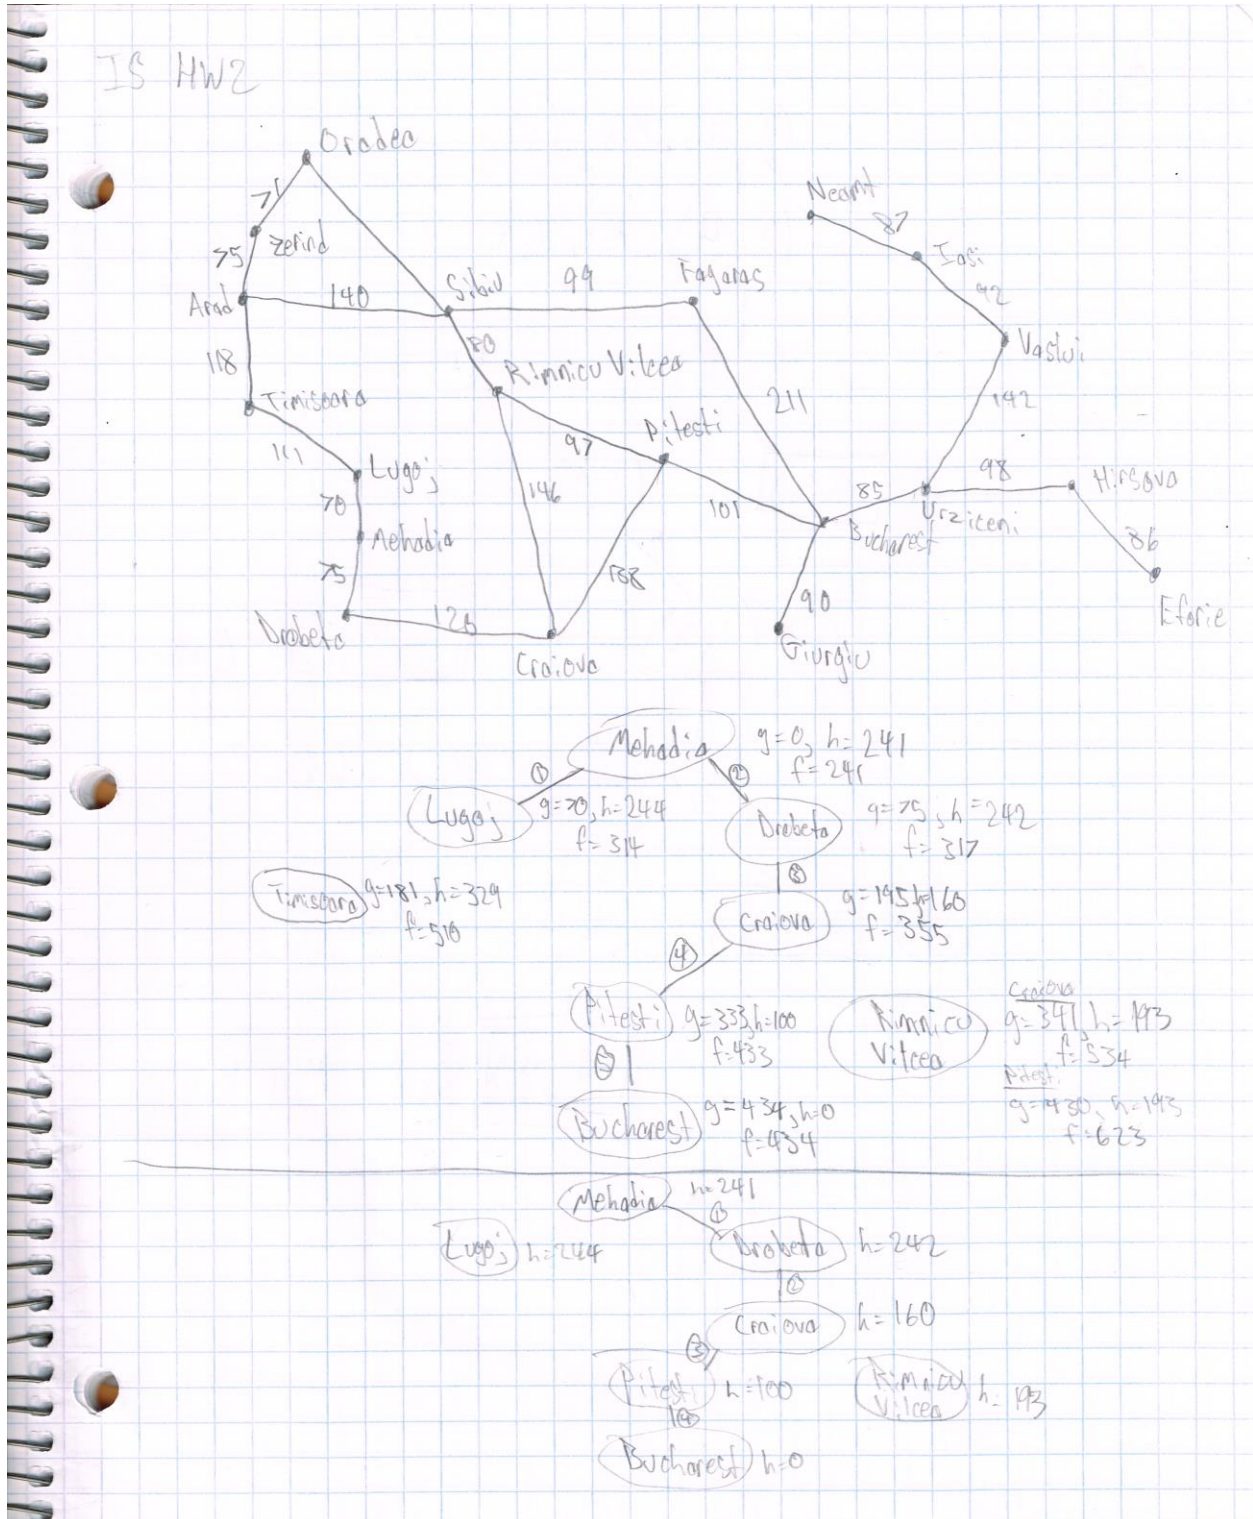 IS HW2
Oradea
71
Zerind
75
Arad
140
Sibiu
99
Fagaras
Neamt
87
Iasi
92
Vaslui
118
80
Rimnicu Vilcea
Timisoara
111
Lugoj
70
Mehadia
75
Drobeta
120
Craiova
146
97
Pitesti
138
101
211
142
85
98
Urziceni
Hirsova
86
Eforie
Bucharest
90
Giurgiu
Mehadia g=0, h=241
f=241
① ②
Lugoj g=70, h=244
f=314
Drobeta g=75, h=242
f=317
③
Timisoara g=181, h=329
f=510
Craiova g=195 h=160
f=355
④
Pitesti g=333, h=100
f=433
Rimnicu
Vilcea
Craiova
g=341, h=193
f=534
Pitesti
g=430, h=193
f=623
⑤
Bucharest g=434, h=0
f=434
Mehadia h=241
①
Lugoj h=244
Drobeta h=242
②
Craiova h=160
③
Pitesti h=100
Rimnicu
Vilcea h=193
④
Bucharest h=0